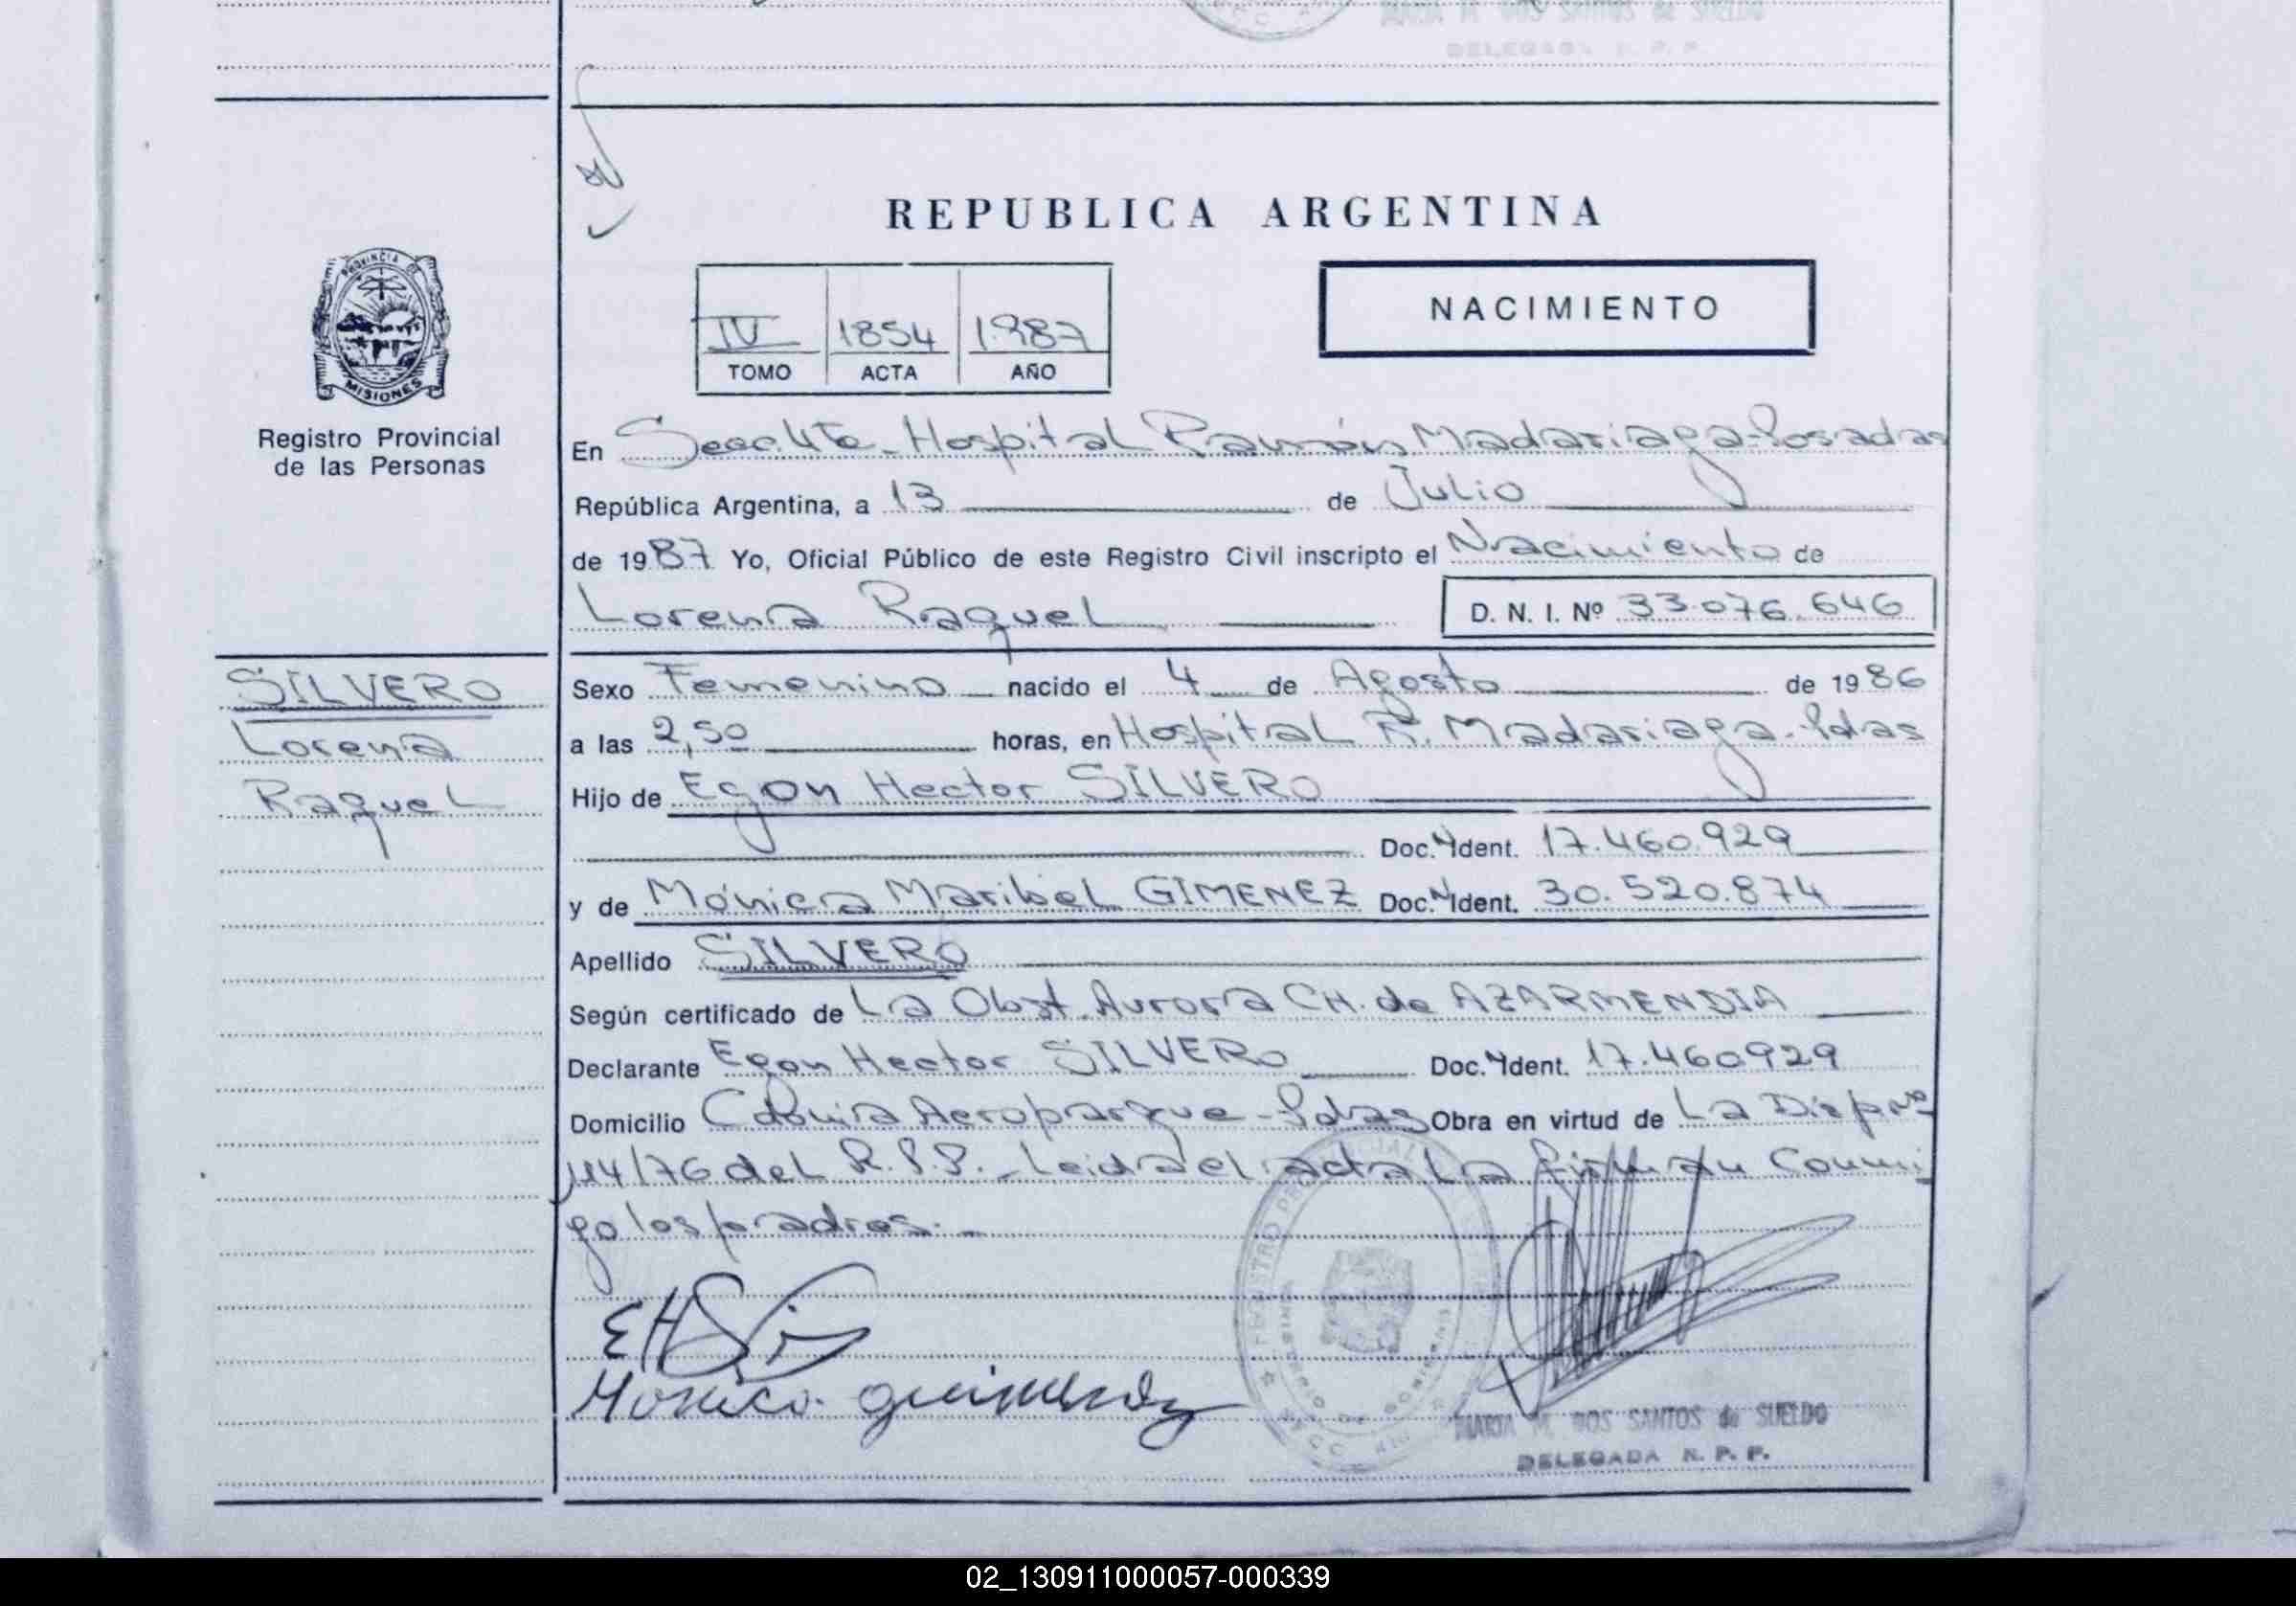 DELEGADA R. P. P.
REPUBLICA ARGENTINA
NACIMIENTO
IV 1854 1987
TOMO ACTA AÑO
PROVINCIA DE
MISIONES
Registro Provincial
de las Personas
En Secc. 4ta. Hospital Ramón Madariaga-Posadas
República Argentina, a 13 de Julio
de 1987 Yo, Oficial Público de este Registro Civil inscripto el Nacimiento de
Lorena Raquel D. N. I. Nº 33.076.646
SILVERO
Lorena
Raquel
Sexo Femenino nacido el 4 de Agosto de 1986
a las 2,50 horas, en Hospital R. Madariaga-Pdas
Hijo de Egon Hector SILVERO
Doc. Ident. 17.460.929
y de Mónica Maribel GIMENEZ Doc. Ident. 30.520.874
Apellido SILVERO
Según certificado de La Obst. Aurora CH. de AZARMENDIA
Declarante Egon Hector SILVERO Doc. Ident. 17.460929
Domicilio Colonia Aeroparque-Pdas Obra en virtud de La Disp Nº
114/76 del R.P.P. Leida el acta La firman Conmi
go los padres.-
Monica
MARTA M. DOS SANTOS de SUELDO
DELEGADA R. P. P.
02_130911000057-000339